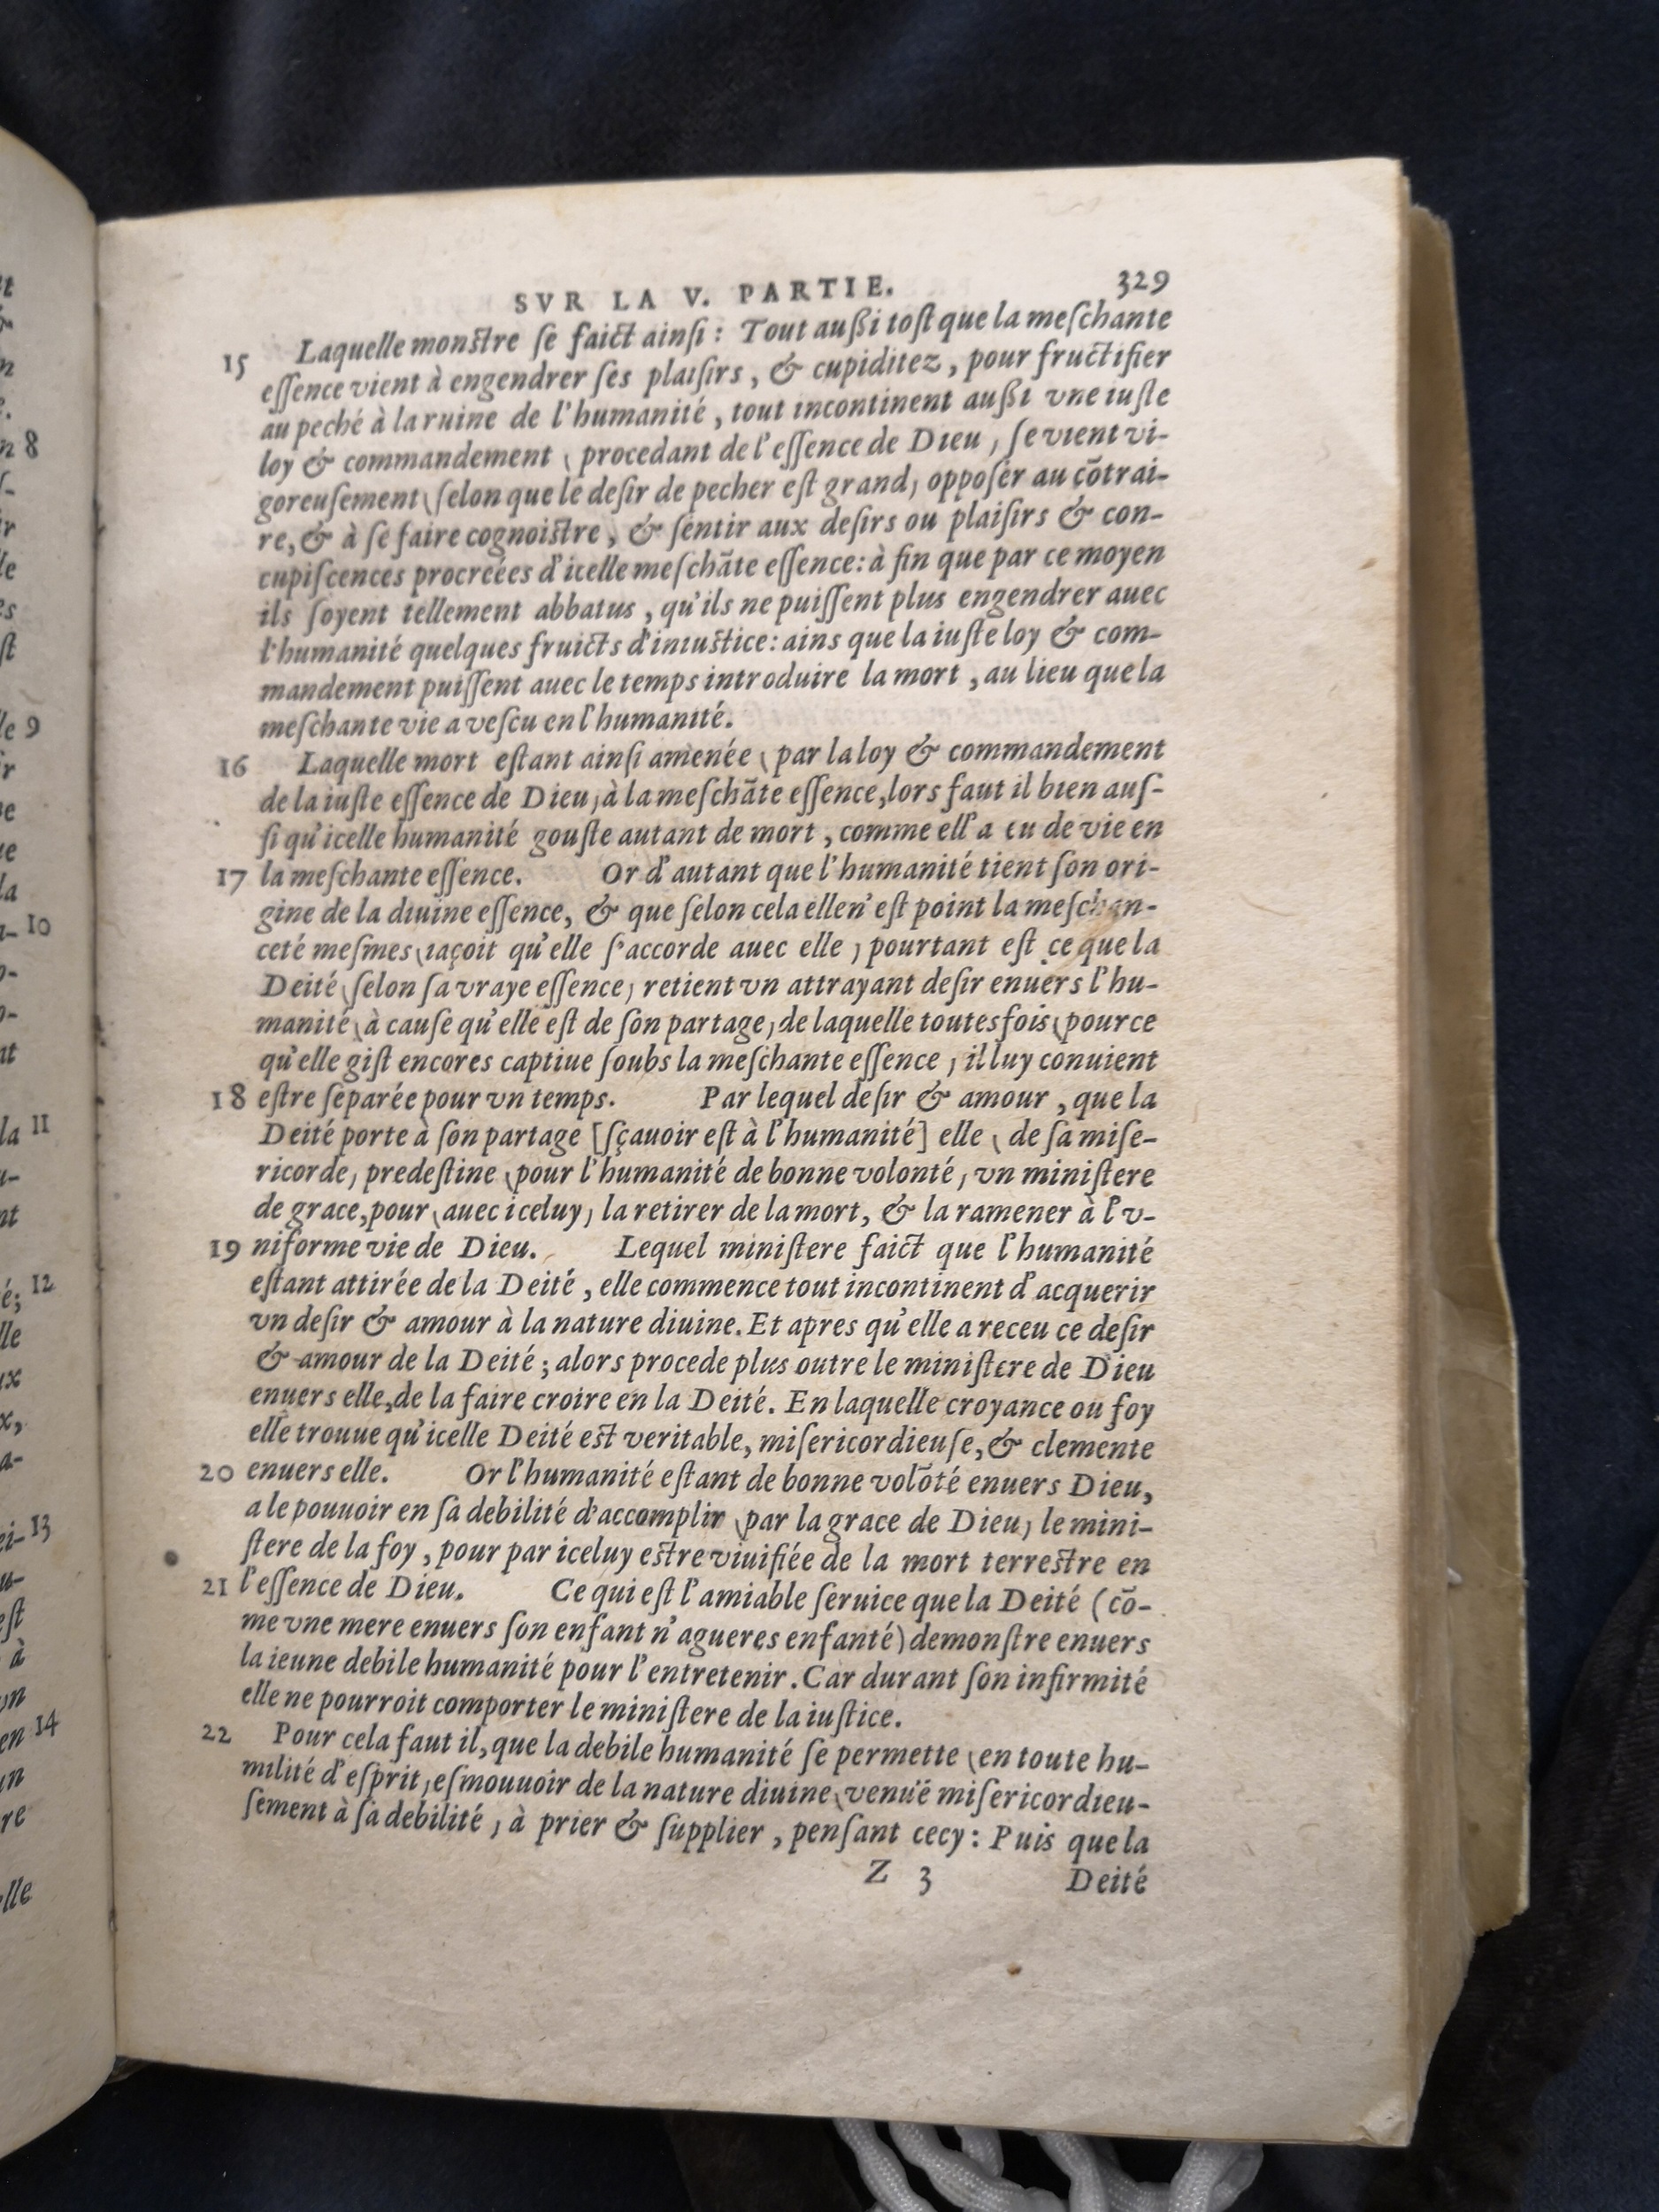 SVR LA V. PARTIE. 329
15 Laquelle monstre se faict ainsi : Tout außi tost que la meschante
essence vient à engendrer ses plaisirs, & cupiditez, pour fructifier
au peché à la ruine de l'humanité, tout incontinent außi vne iuste
loy & commandement \ procedant de l'essence de Dieu, se vient vi-
goreusement \ selon que le desir de pecher est grand, opposer au cōtrai-
re, & à se faire cognoistre, & sentir aux desirs ou plaisirs & con-
cupiscences procreées d'icelle meschāte essence: à fin que par ce moyen
ils soyent tellement abbatus, qu'ils ne puissent plus engendrer auec
l'humanité quelques fruicts d'iniustice: ains que la iuste loy & com-
mandement puissent auec le temps introduire la mort, au lieu que la
meschante vie a vescu en l'humanité.
16 Laquelle mort estant ainsi amenée \ par la loy & commandement
de la iuste essence de Dieu, à la meschāte essence, lors faut il bien aus-
si qu'icelle humanité gouste autant de mort, comme ell'a eu de vie en
17 la meschante essence. Or d'autant que l'humanité tient son ori-
gine de la diuine essence, & que selon cela elle n'est point la meschan-
ceté mesmes \ iaçoit qu'elle s'accorde auec elle, pourtant est ce que la
Deité \ selon sa vraye essence, retient vn attrayant desir enuers l'hu-
manité \ à cause qu'elle est de son partage, de laquelle toutesfois \ pource
qu'elle gist encores captiue soubs la meschante essence, il luy conuient
18 estre separée pour vn temps. Par lequel desir & amour, que la
Deité porte à son partage [sçauoir est à l'humanité] elle \ de sa mise-
ricorde, predestine \ pour l'humanité de bonne volonté, vn ministere
de grace, pour \ auec iceluy, la retirer de la mort, & la ramener à l'v-
19 niforme vie de Dieu. Lequel ministere faict que l'humanité
estant attirée de la Deité, elle commence tout incontinent d'acquerir
vn desir & amour à la nature diuine. Et apres qu'elle a receu ce desir
& amour de la Deité; alors procede plus outre le ministere de Dieu
enuers elle, de la faire croire en la Deité. En laquelle croyance ou foy
elle trouue qu'icelle Deité est veritable, misericordieuse, & clemente
20 enuers elle. Or l'humanité estant de bonne volōté enuers Dieu,
a le pouuoir en sa debilité d'accomplir \ par la grace de Dieu, le mini-
stere de la foy, pour par iceluy estre viuifiée de la mort terrestre en
21 l'essence de Dieu. Ce qui est l'amiable seruice que la Deité (cō-
me vne mere enuers son enfant n'agueres enfanté) demonstre enuers
la ieune debile humanité pour l'entretenir. Car durant son infirmité
elle ne pourroit comporter le ministere de la iustice.
22 Pour cela faut il, que la debile humanité se permette \ en toute hu-
milité d'esprit, esmouuoir de la nature diuine \ venuë misericordieu-
sement à sa debilité, à prier & supplier, pensant cecy: Puis que la
Z 3 Deité